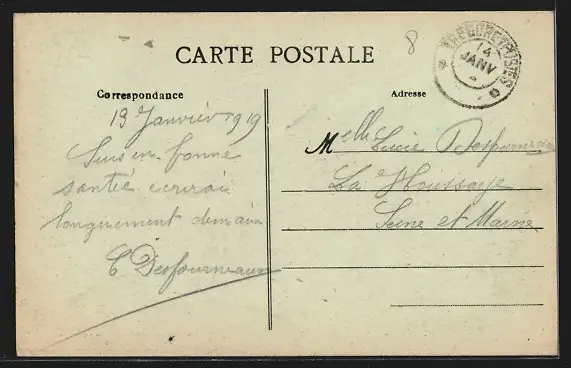 CARTE POSTALE
8
TRESOR ET POSTES
14
JANV
Correspondance
Adresse
13 Janvier 1919
Suis en bonne
santé ecrirai
longuement demain
E Desfourneaux
Melle Lucie Desfourneaux
La Houssaye
Seine et Marne